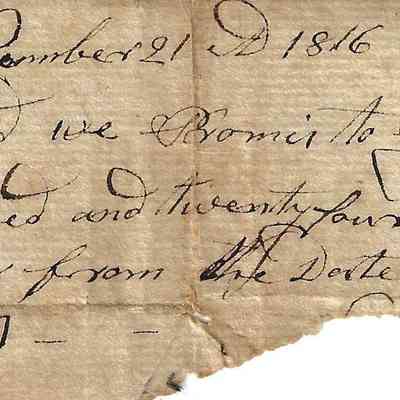 cember 21 AD 1816
d we Promis to
ed and twenty four
from the Date